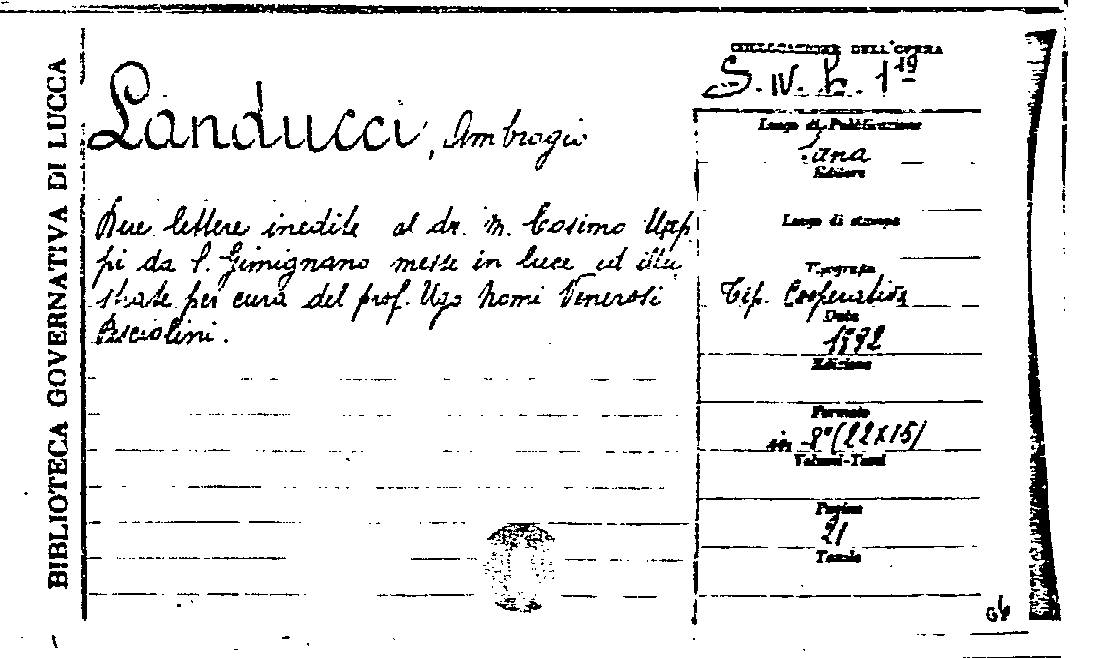 BIBLIOTECA GOVERNATIVA DI LUCCA
Landucci, Ambrogio
Due lettere inedite al dr. M. Cosimo Upp
pi da S. Gimignano messe in luce ed illu
strate per cura del prof. Ugo Nomi Venerosi
Pesciolini.
COLLOCAZIONE DELL'OPERA
S. IV. 1 19
Luogo di Pubblicazione
Editore
Luogo di stampa
Tipografia
Tip. Cooperativa
Data
Edizione
Formato
in-8° (22x15)
Volumi-Tomi
Pagine
21
Tavole